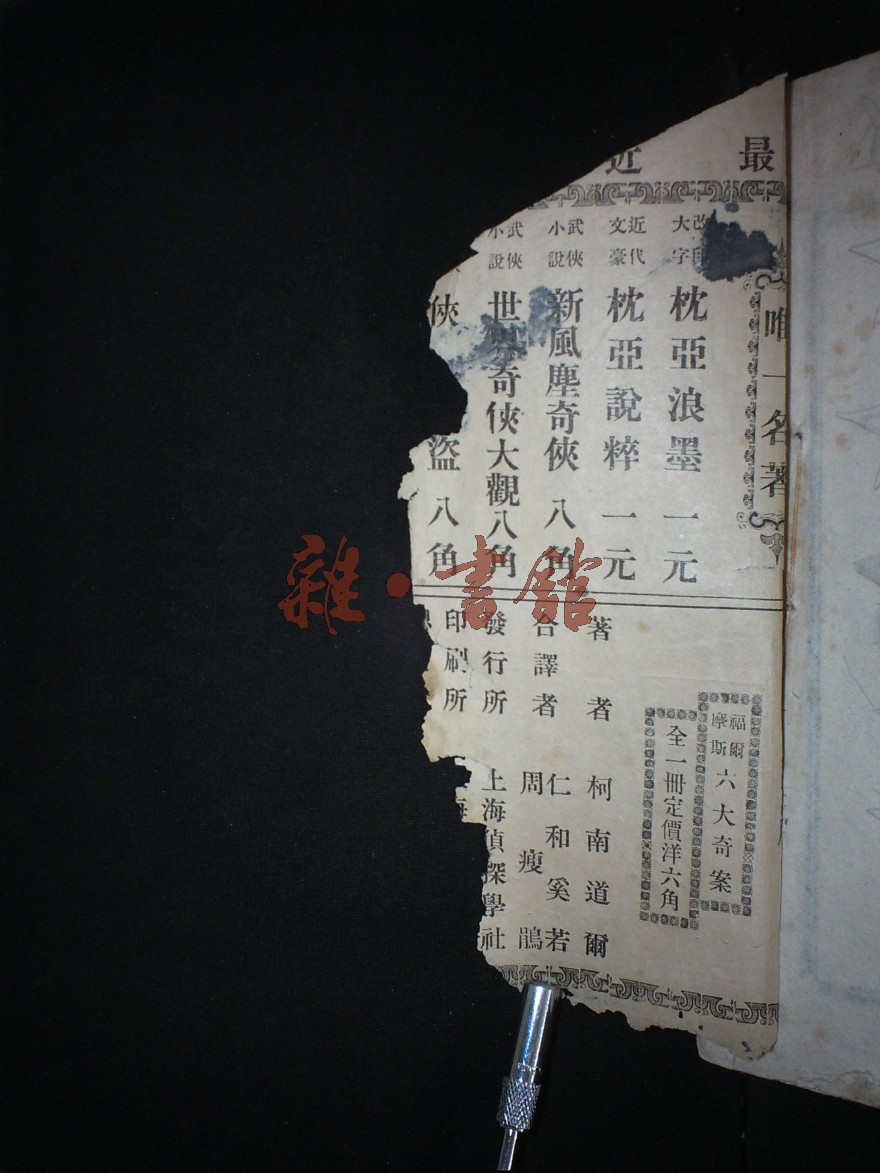 最近
唯一名著
改
大字
枕亞浪墨 一元
近代
文豪
枕亞說粹 一元
武俠
小說
新風塵奇俠 八角
武俠
小說
世界奇俠大觀 八角
俠 盜 八角
福爾
摩斯
六大奇案
全一冊定價洋六角
著者 柯南道爾
合譯者 仁和奚若
周瘦鵑
發行所 上海偵探學社
印刷所 海
雜·書館